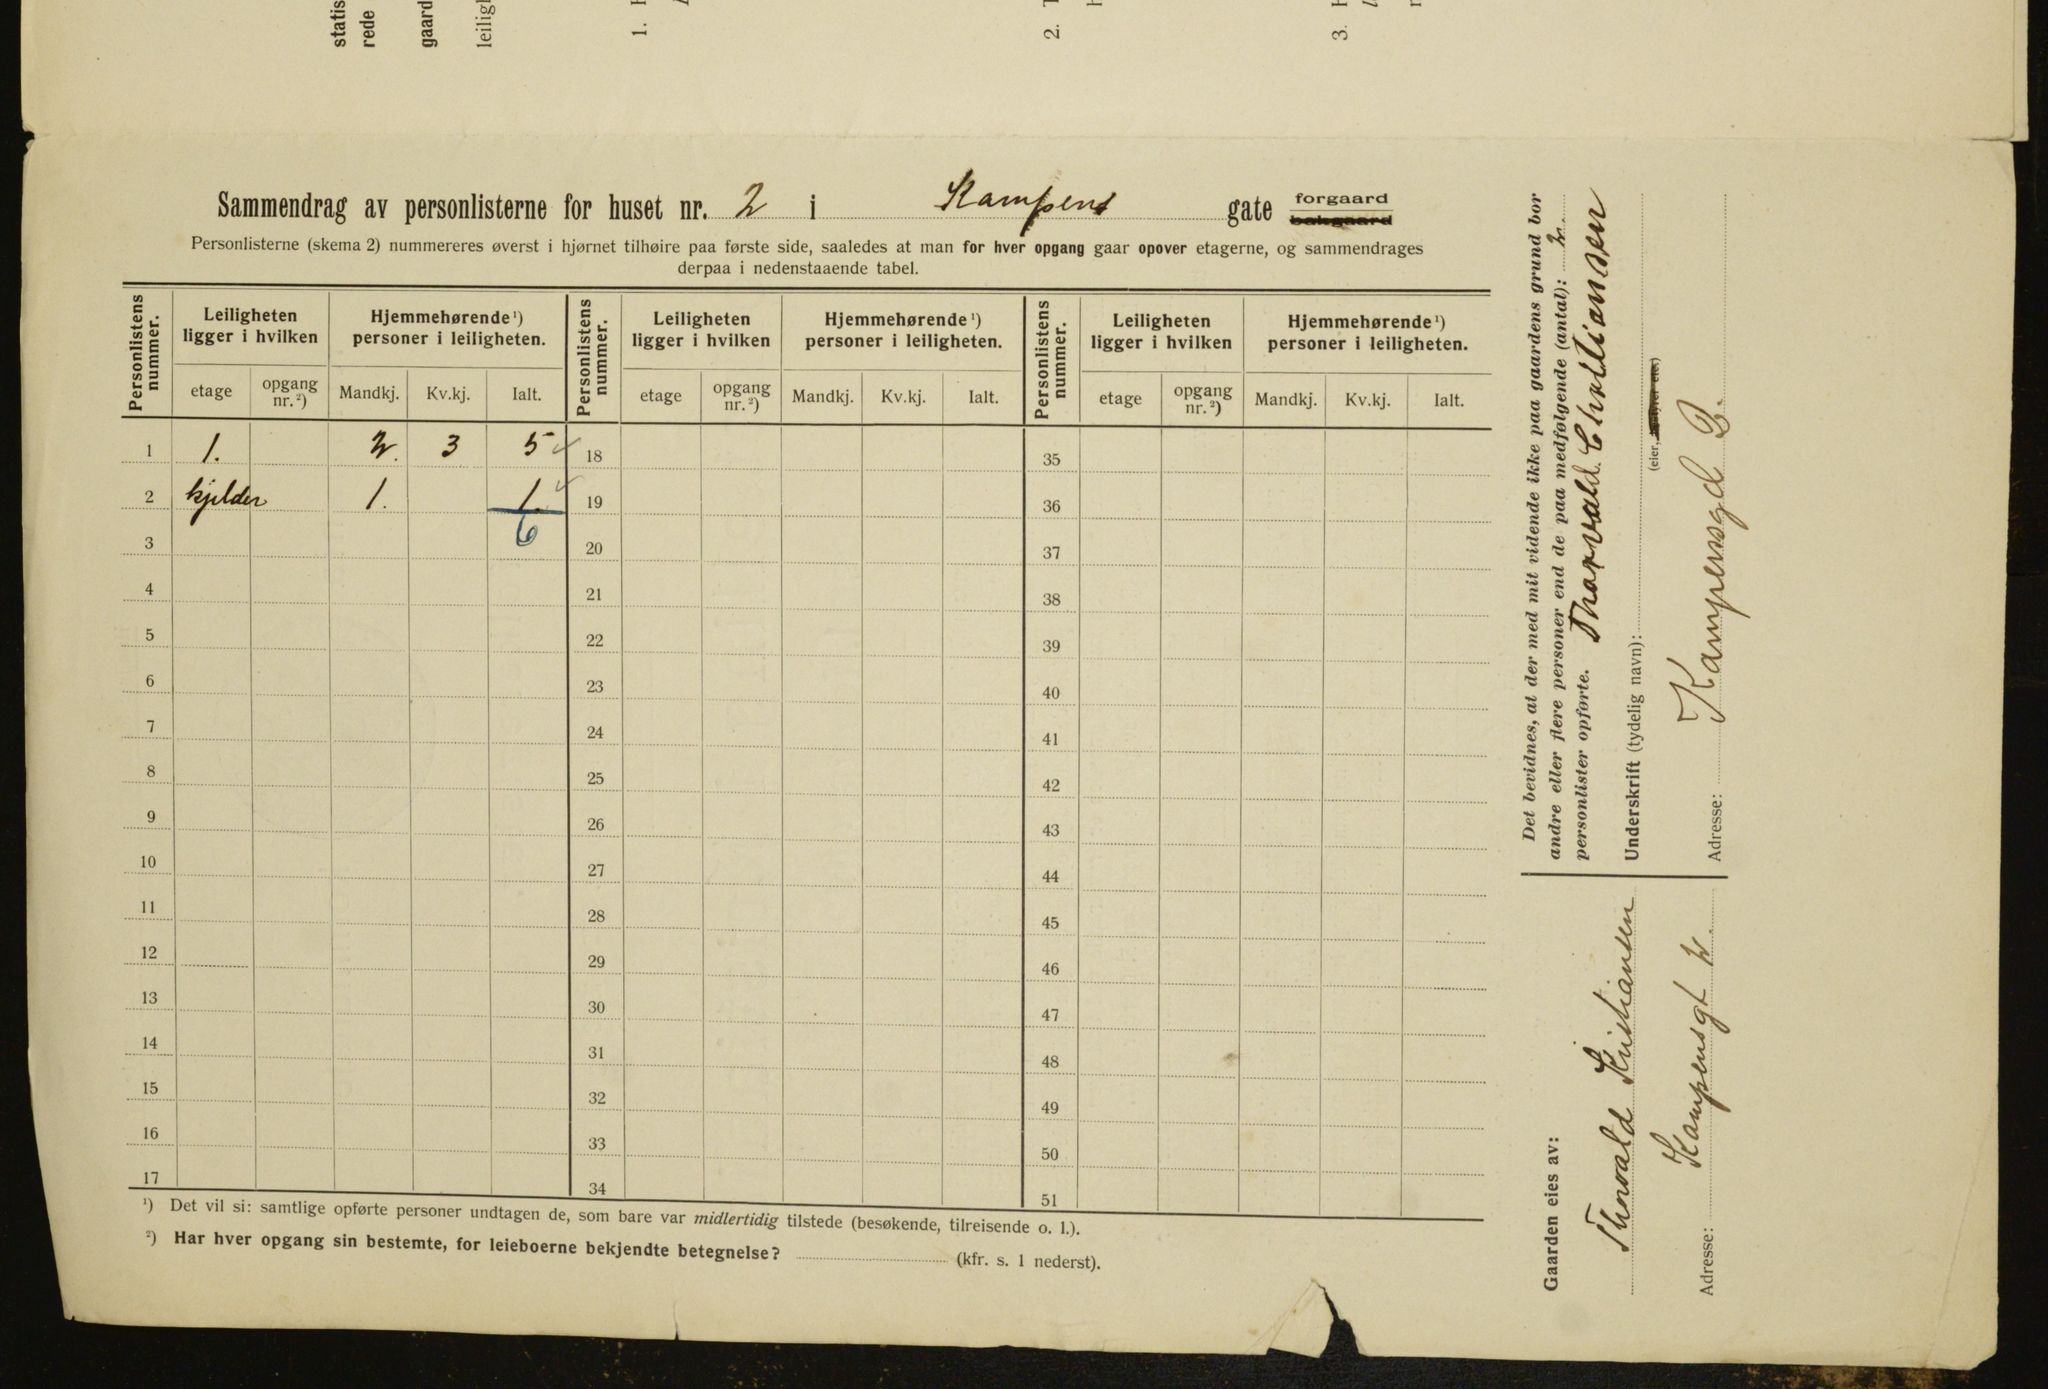 statis
rede
gaard
leilig
1. H
2. T
3. H
Sammendrag av personlisterne for huset nr. 2 i Kampens gate forgaard
bakgaard
Personlisterne (skema 2) nummereres øverst i hjørnet tilhøire paa første side, saaledes at man for hver opgang gaar opover etagerne, og sammendrages
derpaa i nedenstaaende tabel.
Personlistens nummer. Leiligheten ligger i hvilken Hjemmehørende ¹) personer i leiligheten. Personlistens nummer. Leiligheten ligger i hvilken Hjemmehørende ¹) personer i leiligheten. Personlistens nummer. Leiligheten ligger i hvilken Hjemmehørende ¹) personer i leiligheten.
etage opgang nr. ²) Mandkj. Kv.kj. Ialt. etage opgang nr. ²) Mandkj. Kv.kj. Ialt. etage opgang nr. ²) Mandkj. Kv.kj. Ialt.
1 1. 2. 3 5 18 35
2 kjelder 1. 1. 19 36
3 6 20 37
4 21 38
5 22 39
6 23 40
7 24 41
8 25 42
9 26 43
10 27 44
11 28 45
12 29 46
13 30 47
14 31 48
15 32 49
16 33 50
17 34 51
¹) Det vil si: samtlige opførte personer undtagen de, som bare var midlertidig tilstede (besøkende, tilreisende o. l.).
²) Har hver opgang sin bestemte, for leieboerne bekjendte betegnelse? (kfr. s. 1 nederst).
Det bevidnes, at der med mit vidende ikke paa gaardens grund bor
andre eller flere personer end de paa medfølgende (antal): 2.
personlister opførte. Thorvald Christiansen
Underskrift (tydelig navn):
(eier, bestyrer eies)
Kampensgd 2.
Adresse:
Gaarden eies av:
Thorvald Kristiansen
Kampensgt 2.
Adresse: